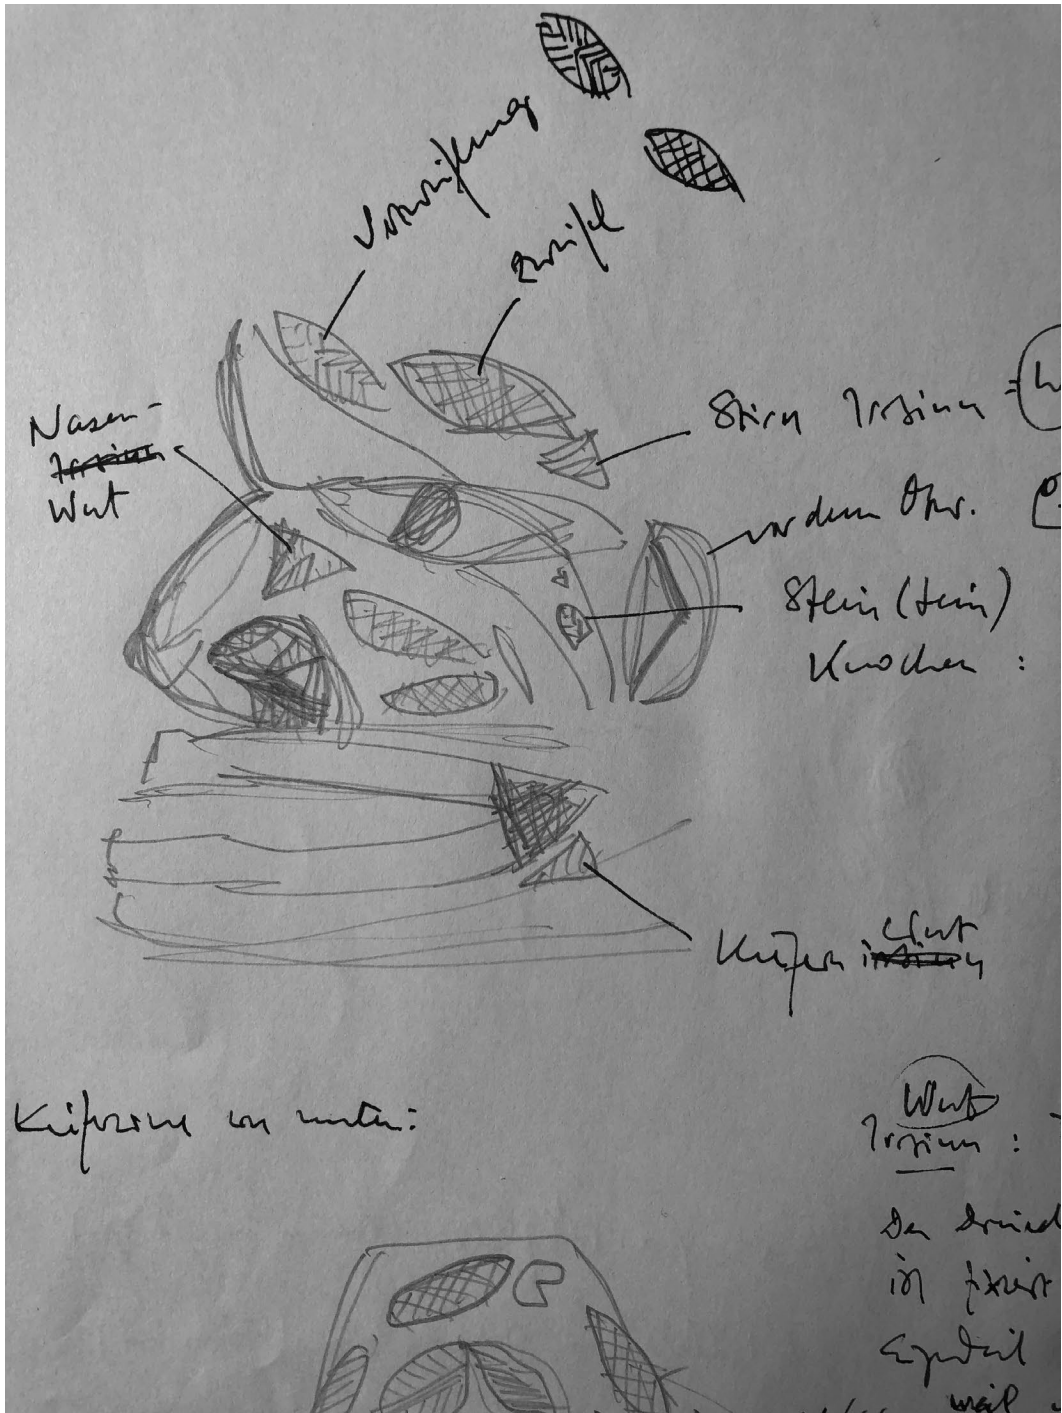 Verzweiflung
Zweifel
Nasen-
Wut
Stirn Irrsinn =
vor dem Ohr.
Stein (tein)
Knochen :
Kiefern
Wut
Kieferzone von unten:
Wut
Irrsinn :
Der
ist fixiert
weil